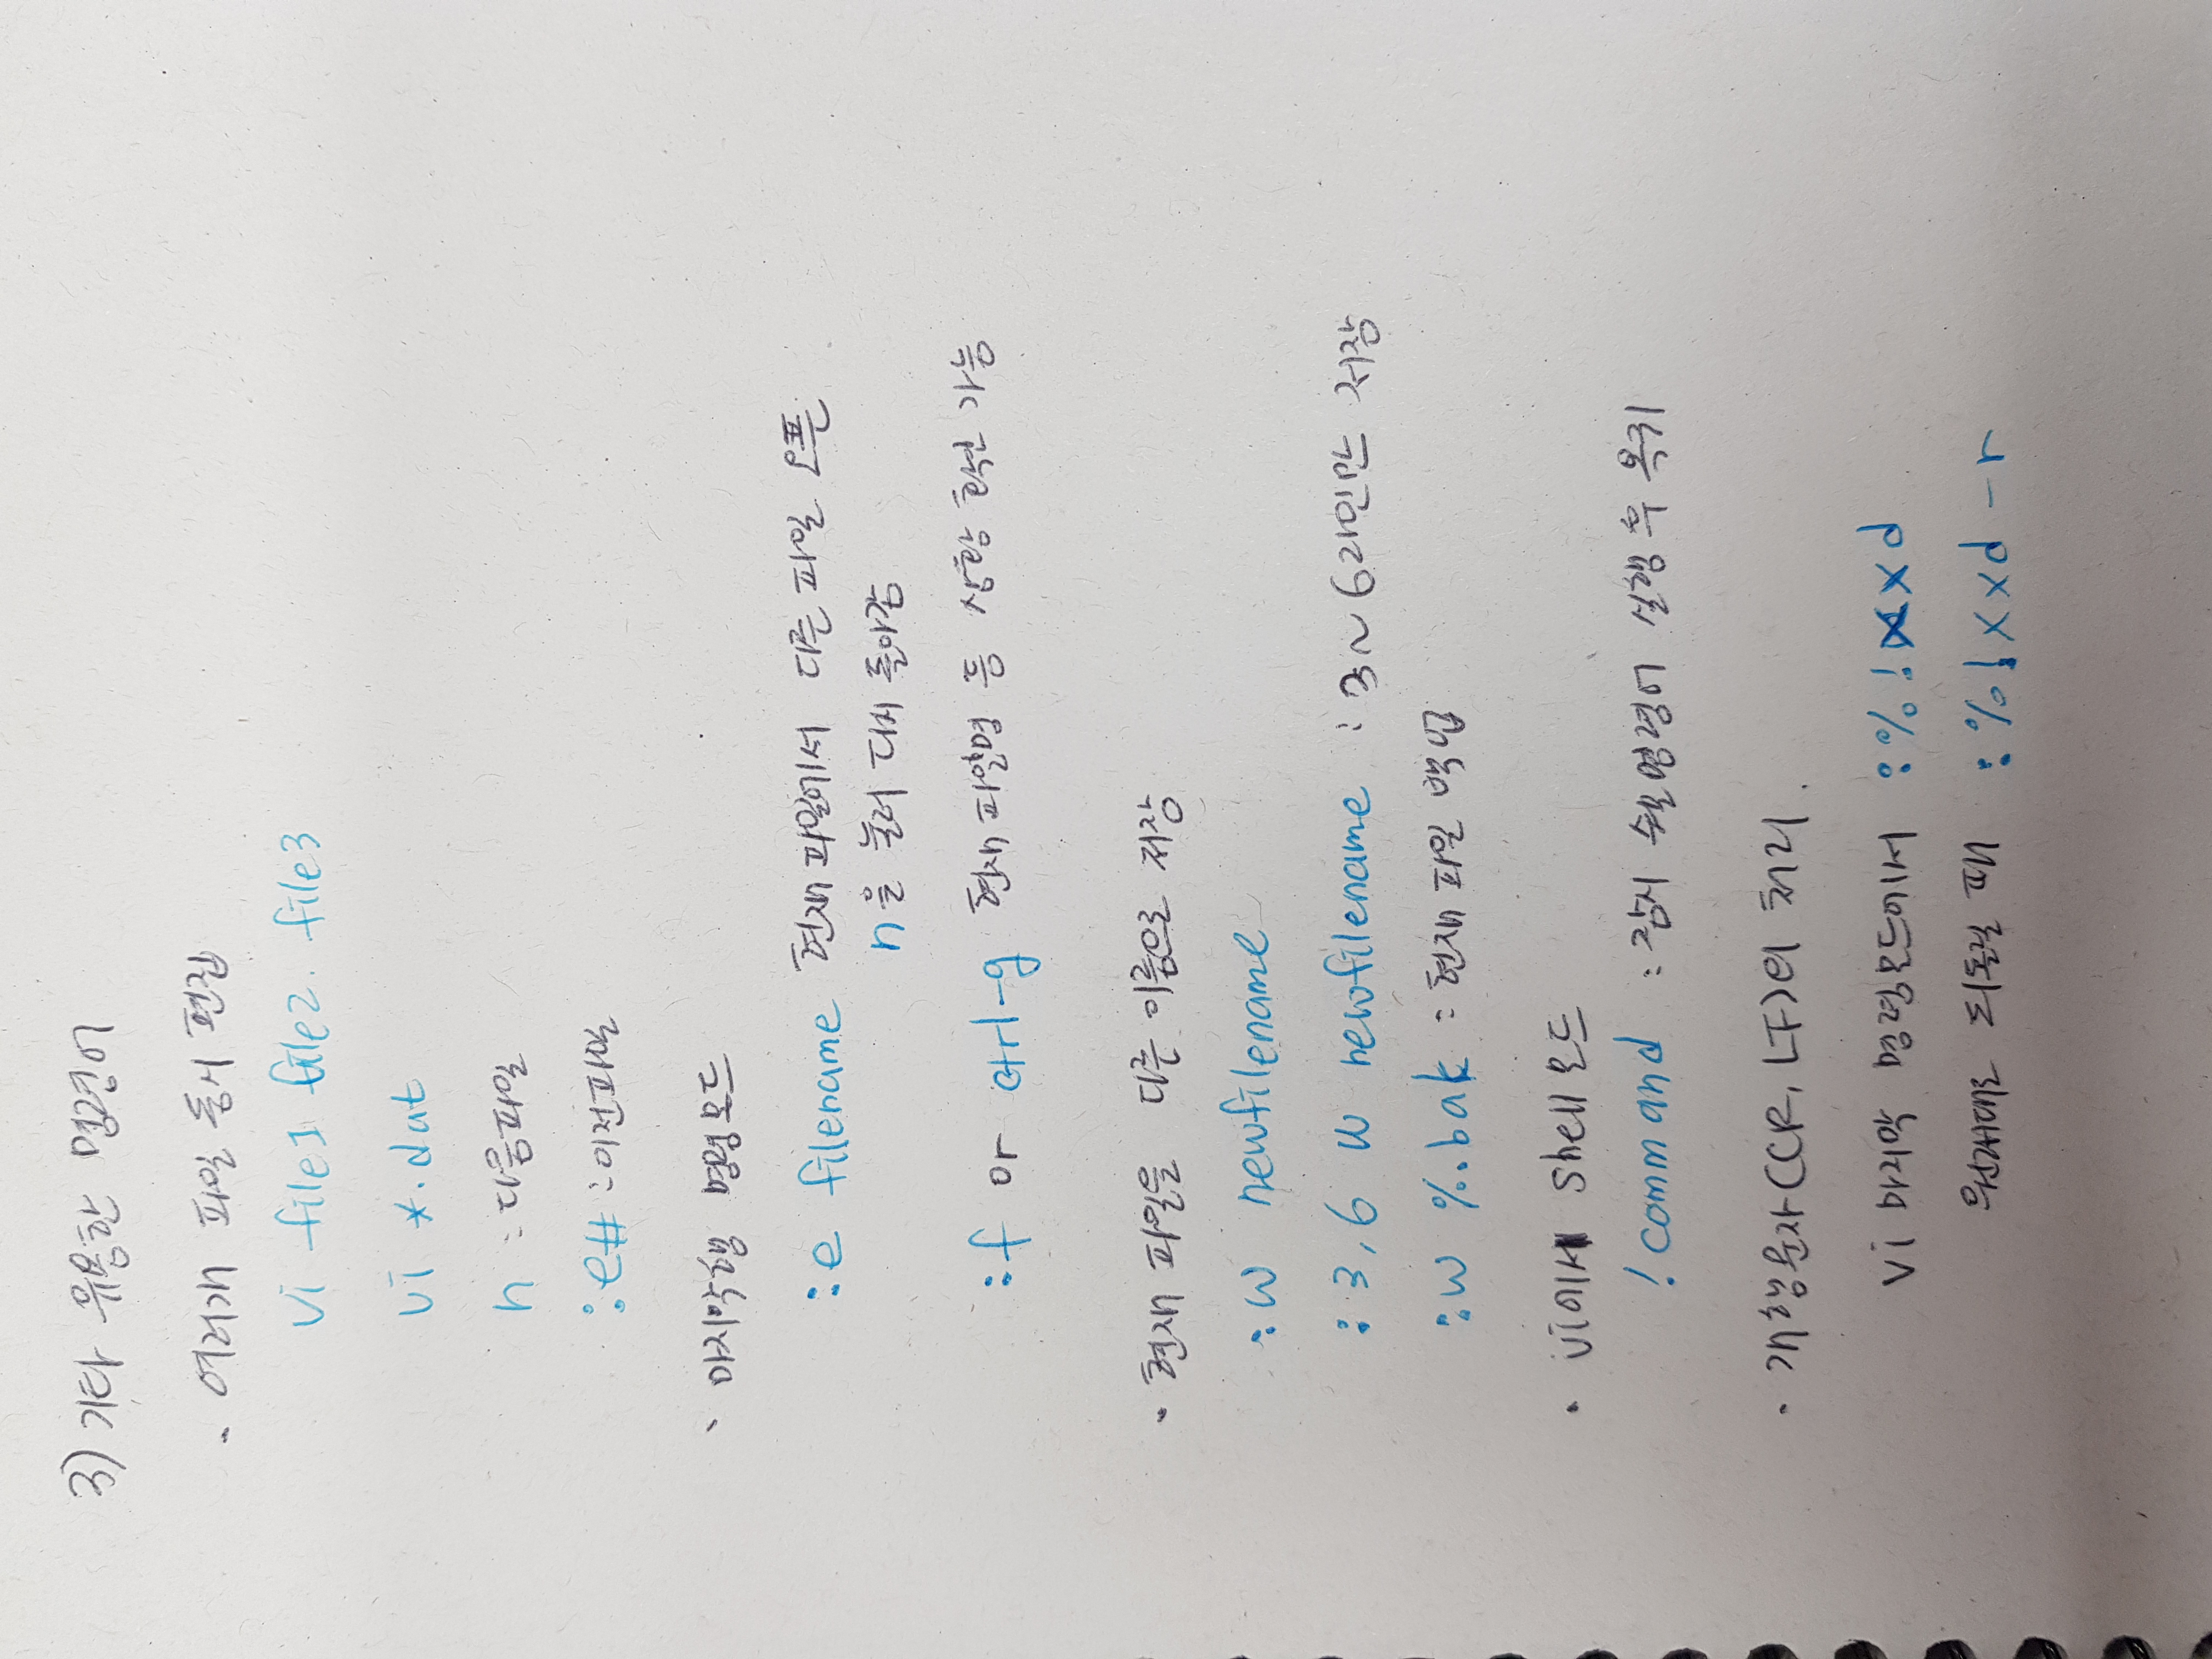 3) 기타 유용한 명령어
· 여러개 파일 동시 편집
vi file1 file2 file3
vi *.dat
n : 다음파일
:e# : 이전파일
· 마지막행 명령모드
:e filename 현재파일에서 다른파일 오픈
n을 눌러 다시 돌아감
:f or ctrl-g 현재 파일명 등 상황 확인 가능
· 현재 파일을 다른 이름으로 저장
:w newfilename
:3,6 w newfilename : 3~6라인만 저장
:w %.bak : 현재 파일 백업
· vi에서 shell 모드
!command : 잠시 쉘명령어 실행 후 복귀
· 개행문자(CR, LF)의 처리.
vi 마지막 명령모드에서 :%!xxd
원래대로 되돌릴 때 :%!xxd -r